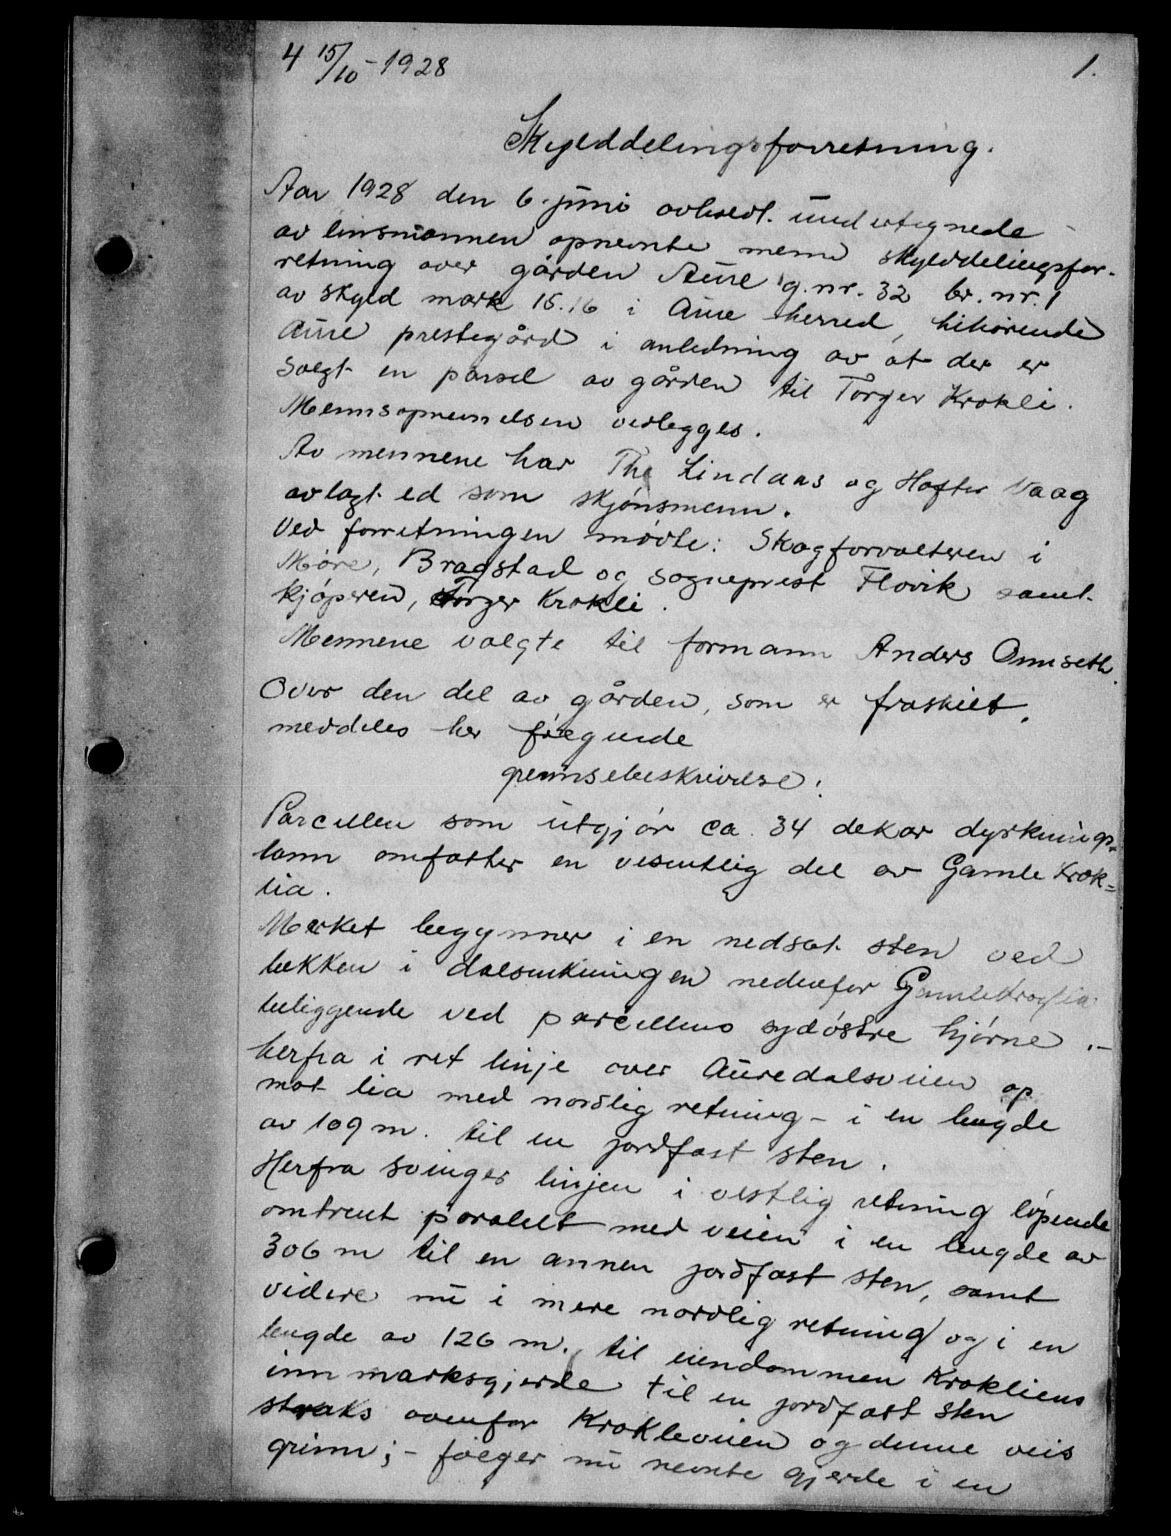 4 15/10-1928
1.
Skylddelingsforretning.
Aar 1928 den 6. juni avholdt undertegnede
av lensmannen opnevnte menn skylddelingsfor-
retning over gården Aure g.nr. 32 br.nr. 1
av skyld mark 15.16 i Aure herred, tilhørende
Aure prestegård i anledning av at der er
solgt en parsel av gården til Torger Krokli.
Mennsopnevnelsen vedlegges.
Av mennene har Lindaas og Hofter Vaag
avlagt ed som skjønsmenn.
Ved forretningen møtte: Skogforvalteren i
Møre, Bragstad og sogneprest Flovik samt
kjøperen, Torger Krokli.
Mennene valgte til formann Anders Omseth.
Over den del av gården, som er fraskilt,
meddeles her følgende
grensebeskrivelse:
Parcellen som utgjør ca. 34 dekar dyrknings-
lann omfatter en vesentlig del av Gamle Krok=
lia.
Merket begynner i en nedsat sten ved
bekken i dalsenkningen nedenfor Gamlekroglia
beliggende ved parcellens sydøstre hjørne.-
herfra i ret linje over Auredalsveien op
mot lia med nordlig retning - i en lengde
av 109 m. til en jordfast sten.
Herfra svinger linjen i vestlig retning løpende
omtrent paralelt med veien i en lengde av
306 m til en annen jordfast sten, samt
videre nu i mere nordlig retning og i en
lengde av 126 m. til eiendommen Krokliens
innmarksgjerde til en jordfast sten
straks ovenfor Krokleveien og denne veis
grinn; - følger nu nevnte gjerde i en